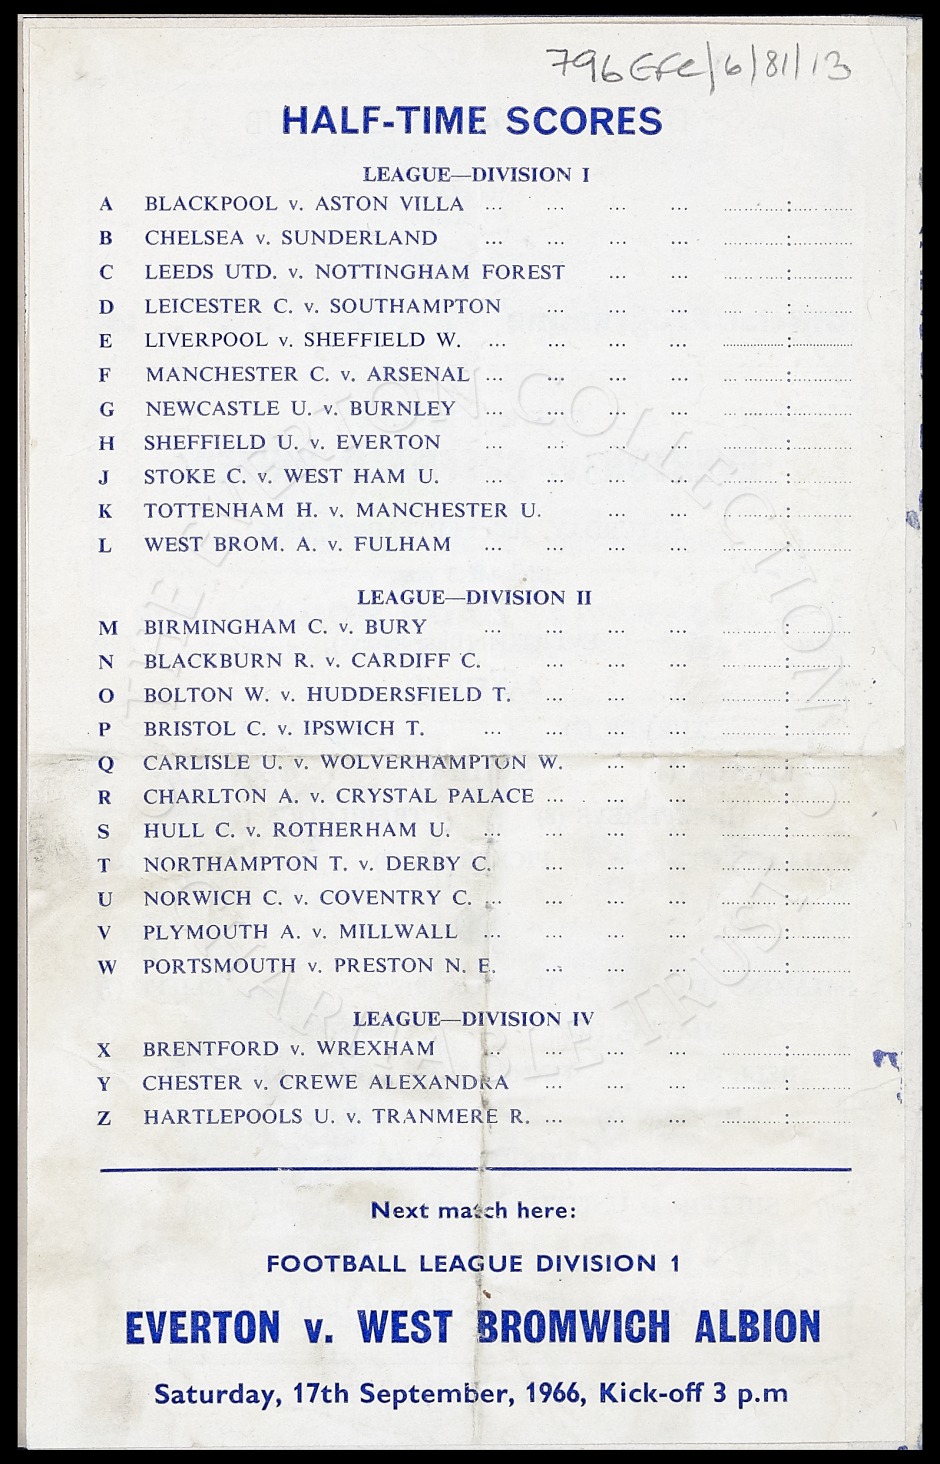 796EFC/6/81/13
HALF-TIME SCORES
LEAGUE—DIVISION I
A BLACKPOOL v. ASTON VILLA ... ... ... ... ............:............
B CHELSEA v. SUNDERLAND ... ... ... ... ............:............
C LEEDS UTD. v. NOTTINGHAM FOREST ... ... ............:............
D LEICESTER C. v. SOUTHAMPTON ... ... ... ............:............
E LIVERPOOL v. SHEFFIELD W. ... ... ... ... ............:............
F MANCHESTER C. v. ARSENAL ... ... ... ... ............:............
G NEWCASTLE U. v. BURNLEY ... ... ... ... ............:............
H SHEFFIELD U. v. EVERTON ... ... ... ... ............:............
J STOKE C. v. WEST HAM U. ... ... ... ... ............:............
K TOTTENHAM H. v. MANCHESTER U. ... ... ............:............
L WEST BROM. A. v. FULHAM ... ... ... ... ............:............
LEAGUE—DIVISION II
M BIRMINGHAM C. v. BURY ... ... ... ... ............:............
N BLACKBURN R. v. CARDIFF C. ... ... ... ............:............
O BOLTON W. v. HUDDERSFIELD T. ... ... ... ............:............
P BRISTOL C. v. IPSWICH T. ... ... ... ... ............:............
Q CARLISLE U. v. WOLVERHAMPTON W. ... ... ............:............
R CHARLTON A. v. CRYSTAL PALACE ... ... ... ............:............
S HULL C. v. ROTHERHAM U. ... ... ... ... ............:............
T NORTHAMPTON T. v. DERBY C. ... ... ... ............:............
U NORWICH C. v. COVENTRY C. ... ... ... ... ............:............
V PLYMOUTH A. v. MILLWALL ... ... ... ... ............:............
W PORTSMOUTH v. PRESTON N. E. ... ... ... ............:............
LEAGUE—DIVISION IV
X BRENTFORD v. WREXHAM ... ... ... ... ............:............
Y CHESTER v. CREWE ALEXANDRA ... ... ... ............:............
Z HARTLEPOOLS U. v. TRANMERE R. ... ... ... ............:............
Next match here:
FOOTBALL LEAGUE DIVISION 1
EVERTON v. WEST BROMWICH ALBION
Saturday, 17th September, 1966, Kick-off 3 p.m
THE EVERTON COLLECTION
CHARITABLE TRUST